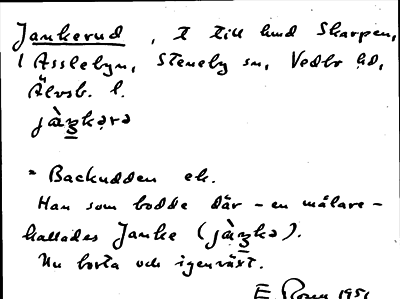 Jankerud, t till hmd Skarpen,
i Asslebyn, Steneby sn, Vedbo hd,
Älvsb. l.
jàŋkərə
= Backudden ek.
Han som bodde där – en målare –
kallades Janke (jàŋkə).
Nu borta och igenväxt.
E. 1951